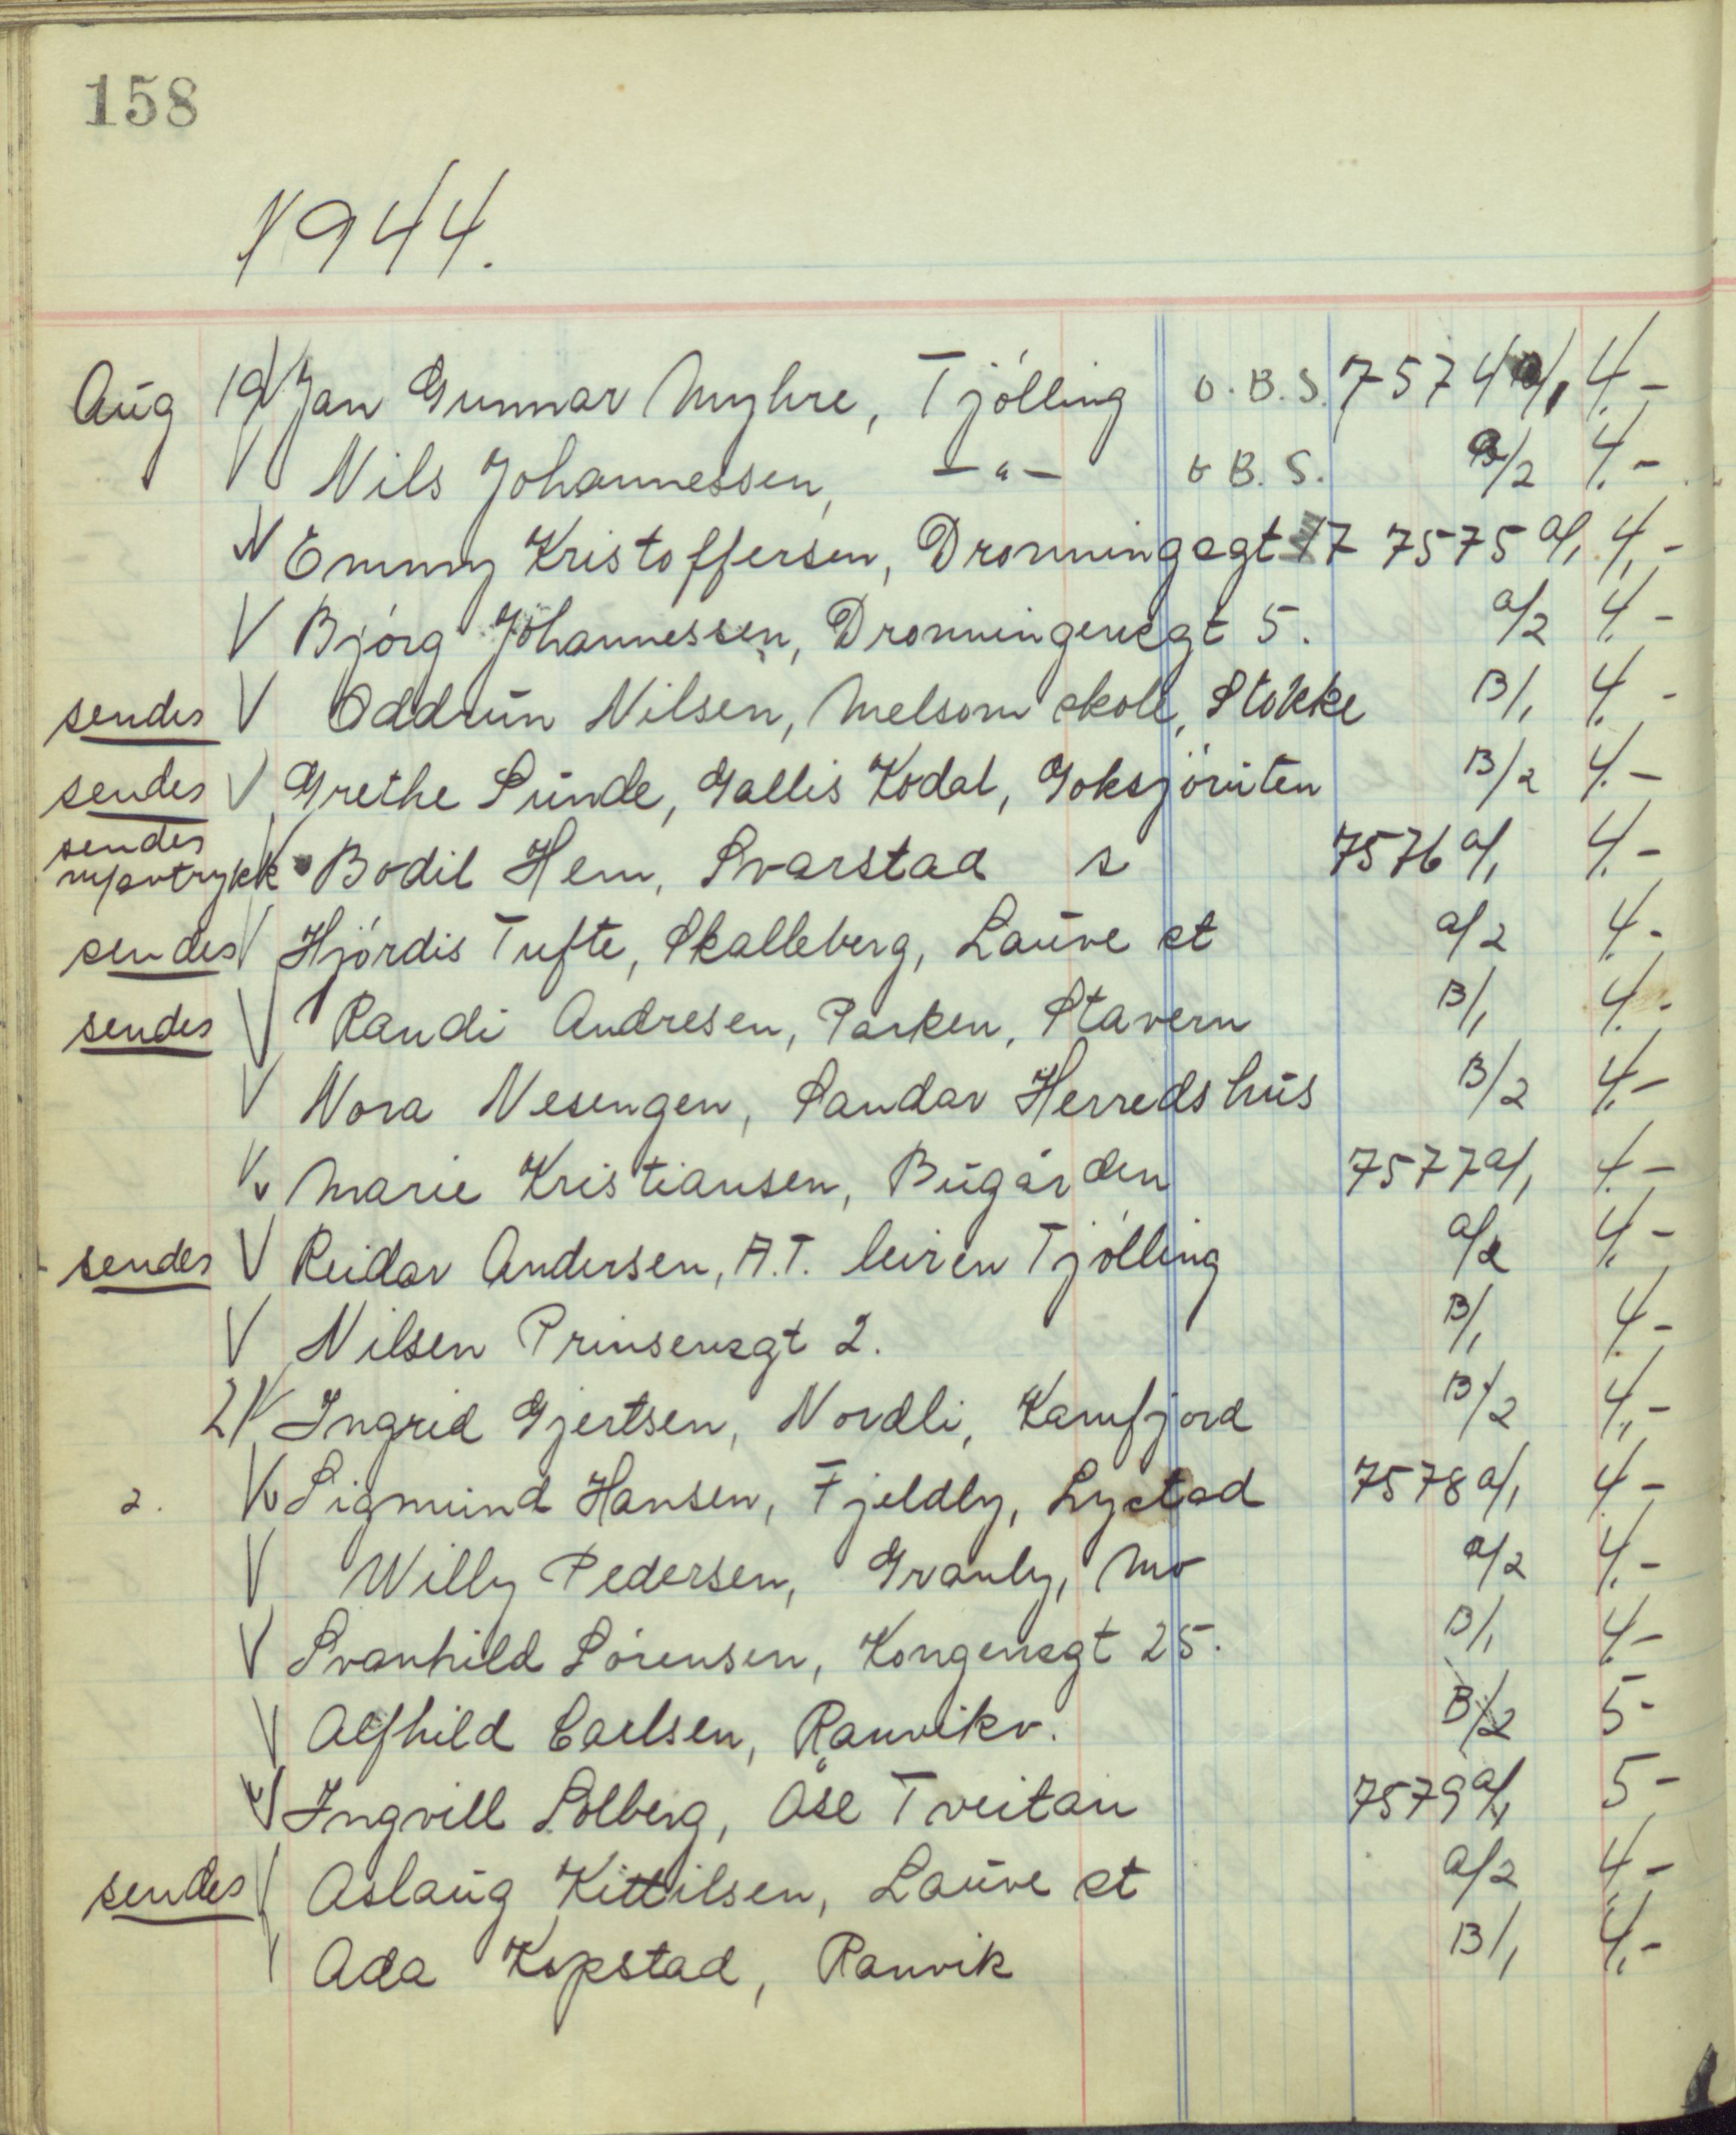 158
1944.
Aug 19 V Jan Gunnar Myhre, Tjölling O.B.S. 7574 a/1 4.-
V Nils Johannessen, -"- O B.S. a/2 4.-
V Emmy Kristoffersen, Dronningsgt 17 7575 a/1 4,-
V Björg Johannessen, Dronningensgt 5. a/2 4.-
sendes V Oddrun Nilsen, Melsom skole, Stokke B/1 4.-
sendes V Grethe Sunde, Gallis Kodal, Goksjöruten B/2 4.-
sendes
m/avtrykk V Bodil Hem, Svarstad s 7576 a/1 4.-
sendes V Hjördis Tufte, Skalleberg, Lauve st a/2 4.-
sendes V Randi Andresen, Parken, Stavern B/1 4.-
V Nora Nesengen, Sandar Herredshus B/2 4.-
V Marie Kristiansen, Bugården 7577 a/1 4.-
sendes V Reidar Andersen, A.T. leiren Tjölling a/2 4.-
V Nilsen Prinsensgt 2. B/1 4.-
21 V Ingrid Gjertsen, Nordli, Kamfjord B/2 4,-
2. V Sigmund Hansen, Fjeldly, Lystad 7578 a/1 4-
V Willy Pedersen, Granly, Mo a/2 4.-
V Svanhild Sörensen, Kongensgt 25. B/1 4.-
V Alfhild Carlsen, Ranvikv. B/2 5-
V Ingvill Solberg, Åse Tveitan 7579 a/1 5-
sendes V Aslaug Kittilsen, Lauve st a/2 4-
V Ada Kopstad, Ranvik B/1 4,-